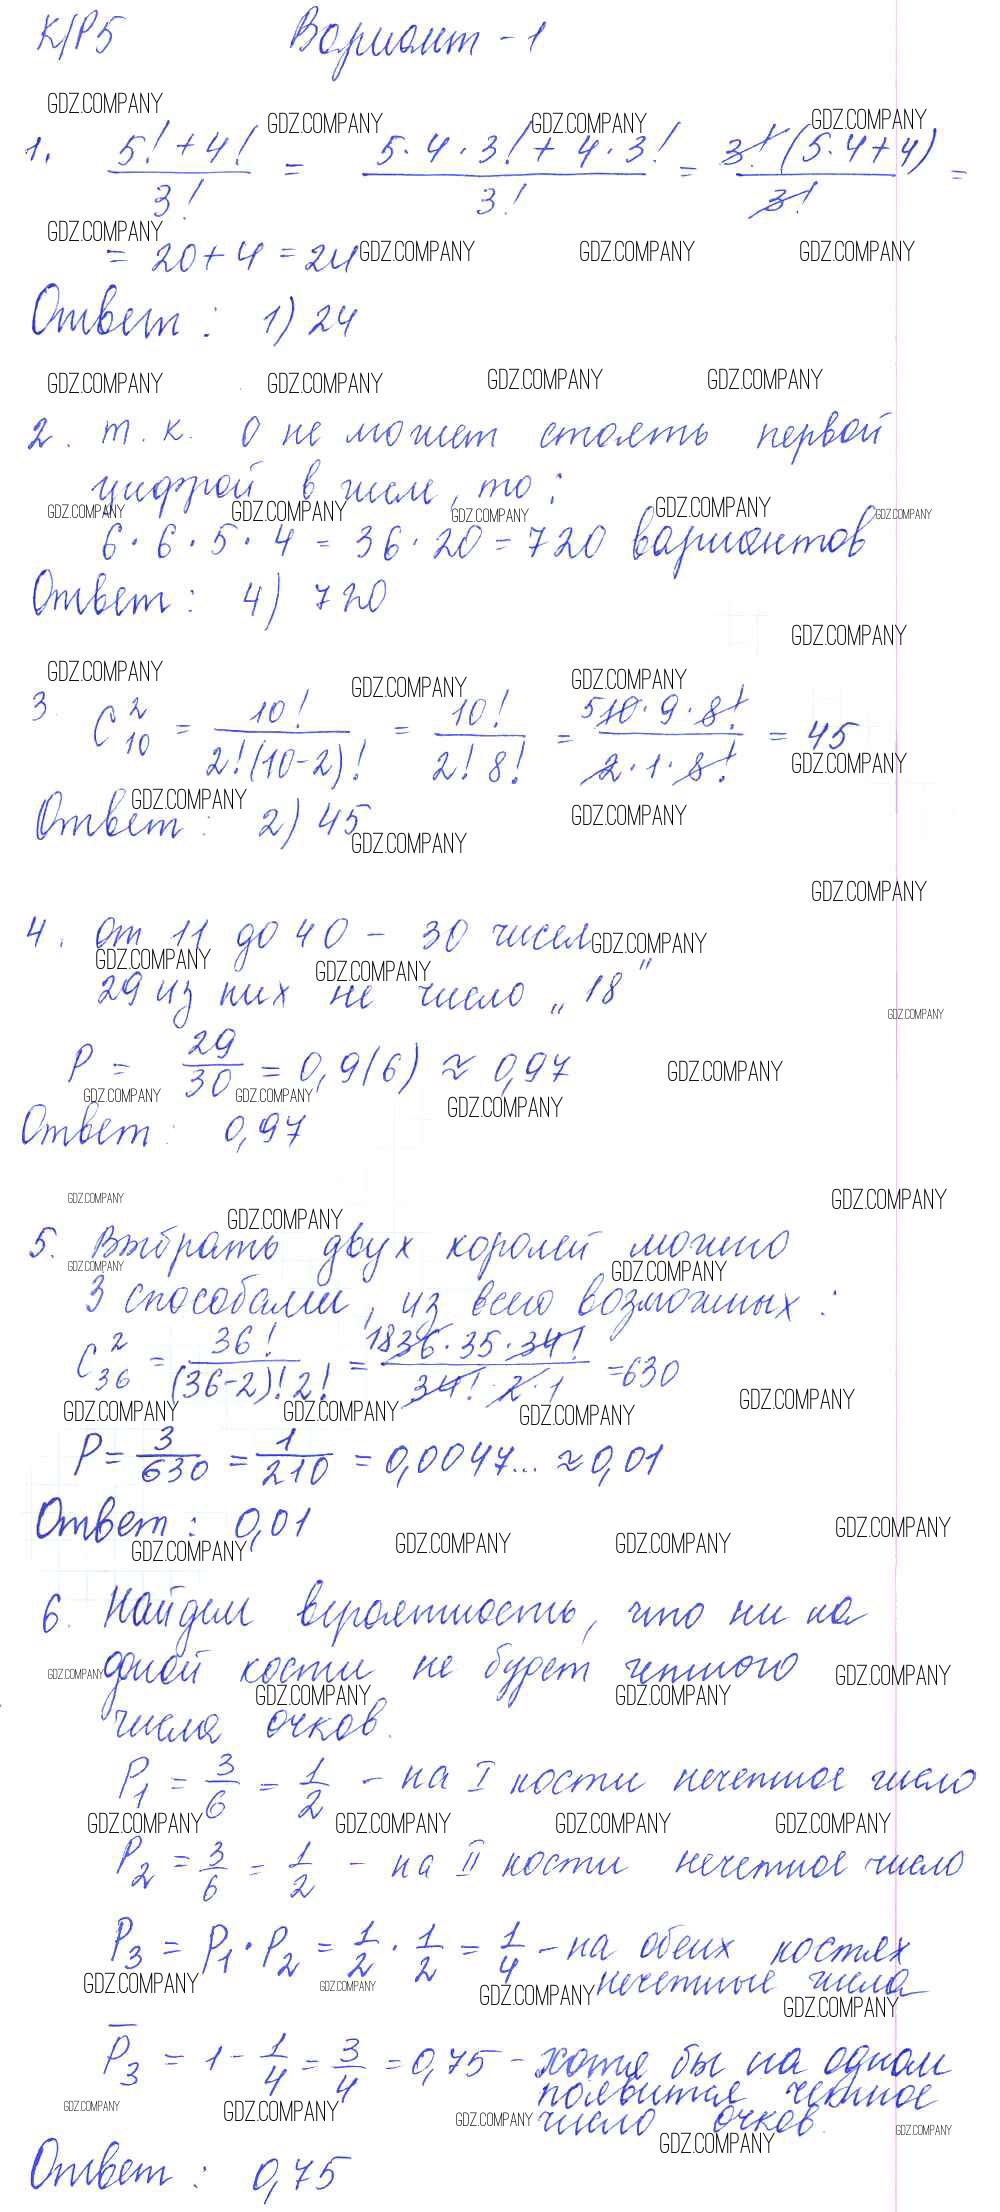 К/Р5 Вариант - 1
GDZ.COMPANY GDZ.COMPANY GDZ.COMPANY GDZ.COMPANY
1. (5! + 4!)/3! = (5·4·3! + 4·3!)/3! = 3!(5·4+4)/3! =
GDZ.COMPANY
= 20 + 4 = 24 GDZ.COMPANY GDZ.COMPANY GDZ.COMPANY
Ответ: 1) 24
GDZ.COMPANY GDZ.COMPANY GDZ.COMPANY GDZ.COMPANY
2. т.к. 0 не может стоять первой
цифрой в числе, то:
GDZ.COMPANY GDZ.COMPANY GDZ.COMPANY GDZ.COMPANY GDZ.COMPANY
6·6·5·4 = 36·20 = 720 вариантов
Ответ: 4) 720
GDZ.COMPANY
GDZ.COMPANY GDZ.COMPANY GDZ.COMPANY
3. C²₁₀ = 10!/(2!(10-2)!) = 10!/(2! 8!) = 5 10·9·8!/(2·1·8!) = 45
GDZ.COMPANY
GDZ.COMPANY GDZ.COMPANY
Ответ: 2) 45
GDZ.COMPANY
GDZ.COMPANY
4. От 11 до 40 - 30 чисел GDZ.COMPANY
GDZ.COMPANY GDZ.COMPANY
29 из них не число „18"
GDZ.COMPANY
P = 29/30 = 0,9(6) ≈ 0,97 GDZ.COMPANY
GDZ.COMPANY GDZ.COMPANY GDZ.COMPANY
Ответ: 0,97
GDZ.COMPANY GDZ.COMPANY
GDZ.COMPANY
5. Выбрать двух королей можно
GDZ.COMPANY GDZ.COMPANY
3 способами, из всего возможных:
C²₃₆ = 36!/((36-2)! 2!) = 18 36·35·34!/(34!·2·1) = 630
GDZ.COMPANY GDZ.COMPANY GDZ.COMPANY GDZ.COMPANY
P = 3/630 = 1/210 = 0,0047... ≈ 0,01
Ответ: 0,01
GDZ.COMPANY GDZ.COMPANY GDZ.COMPANY GDZ.COMPANY
6. Найдем вероятность, что ни на
одной кости не будет четного
GDZ.COMPANY GDZ.COMPANY GDZ.COMPANY GDZ.COMPANY
числа очков.
P₁ = 3/6 = 1/2 - на I кости нечетное число
GDZ.COMPANY GDZ.COMPANY GDZ.COMPANY GDZ.COMPANY
P₂ = 3/6 = 1/2 - на II кости нечетное число
P₃ = P₁·P₂ = 1/2 · 1/2 = 1/4 - на обеих костях
нечетные числа
GDZ.COMPANY GDZ.COMPANY GDZ.COMPANY GDZ.COMPANY
P̅₃ = 1 - 1/4 = 3/4 = 0,75 - хотя бы на одном
появится четное
число очков.
GDZ.COMPANY GDZ.COMPANY GDZ.COMPANY GDZ.COMPANY GDZ.COMPANY
Ответ: 0,75